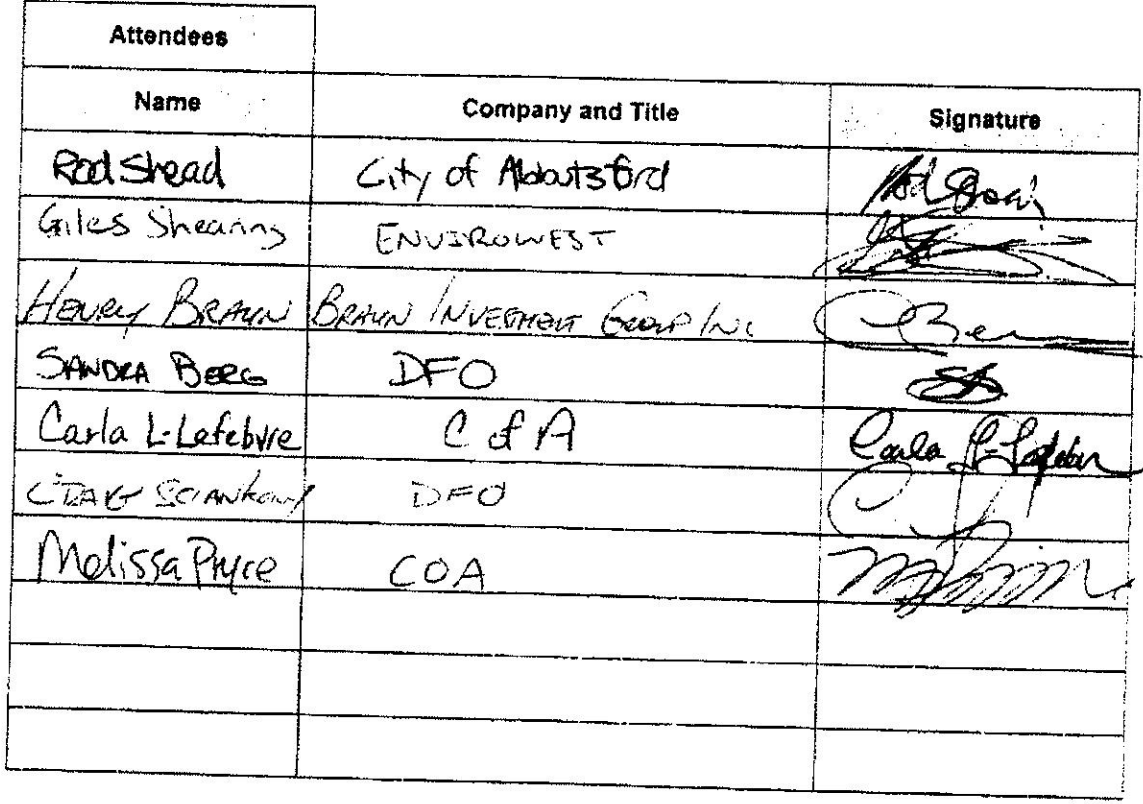 Attendees
Name Company and Title Signature
Rod Shead City of Abbotsford
Giles Shearing ENVIROWEST
HENRY BRAUN BRAUN INVESTMENT GROUP INC
SANDRA BERG DFO
Carla L-Lefebvre C of A Carla L-Lefebvre
CRAIG DFO
Melissa Pryce COA